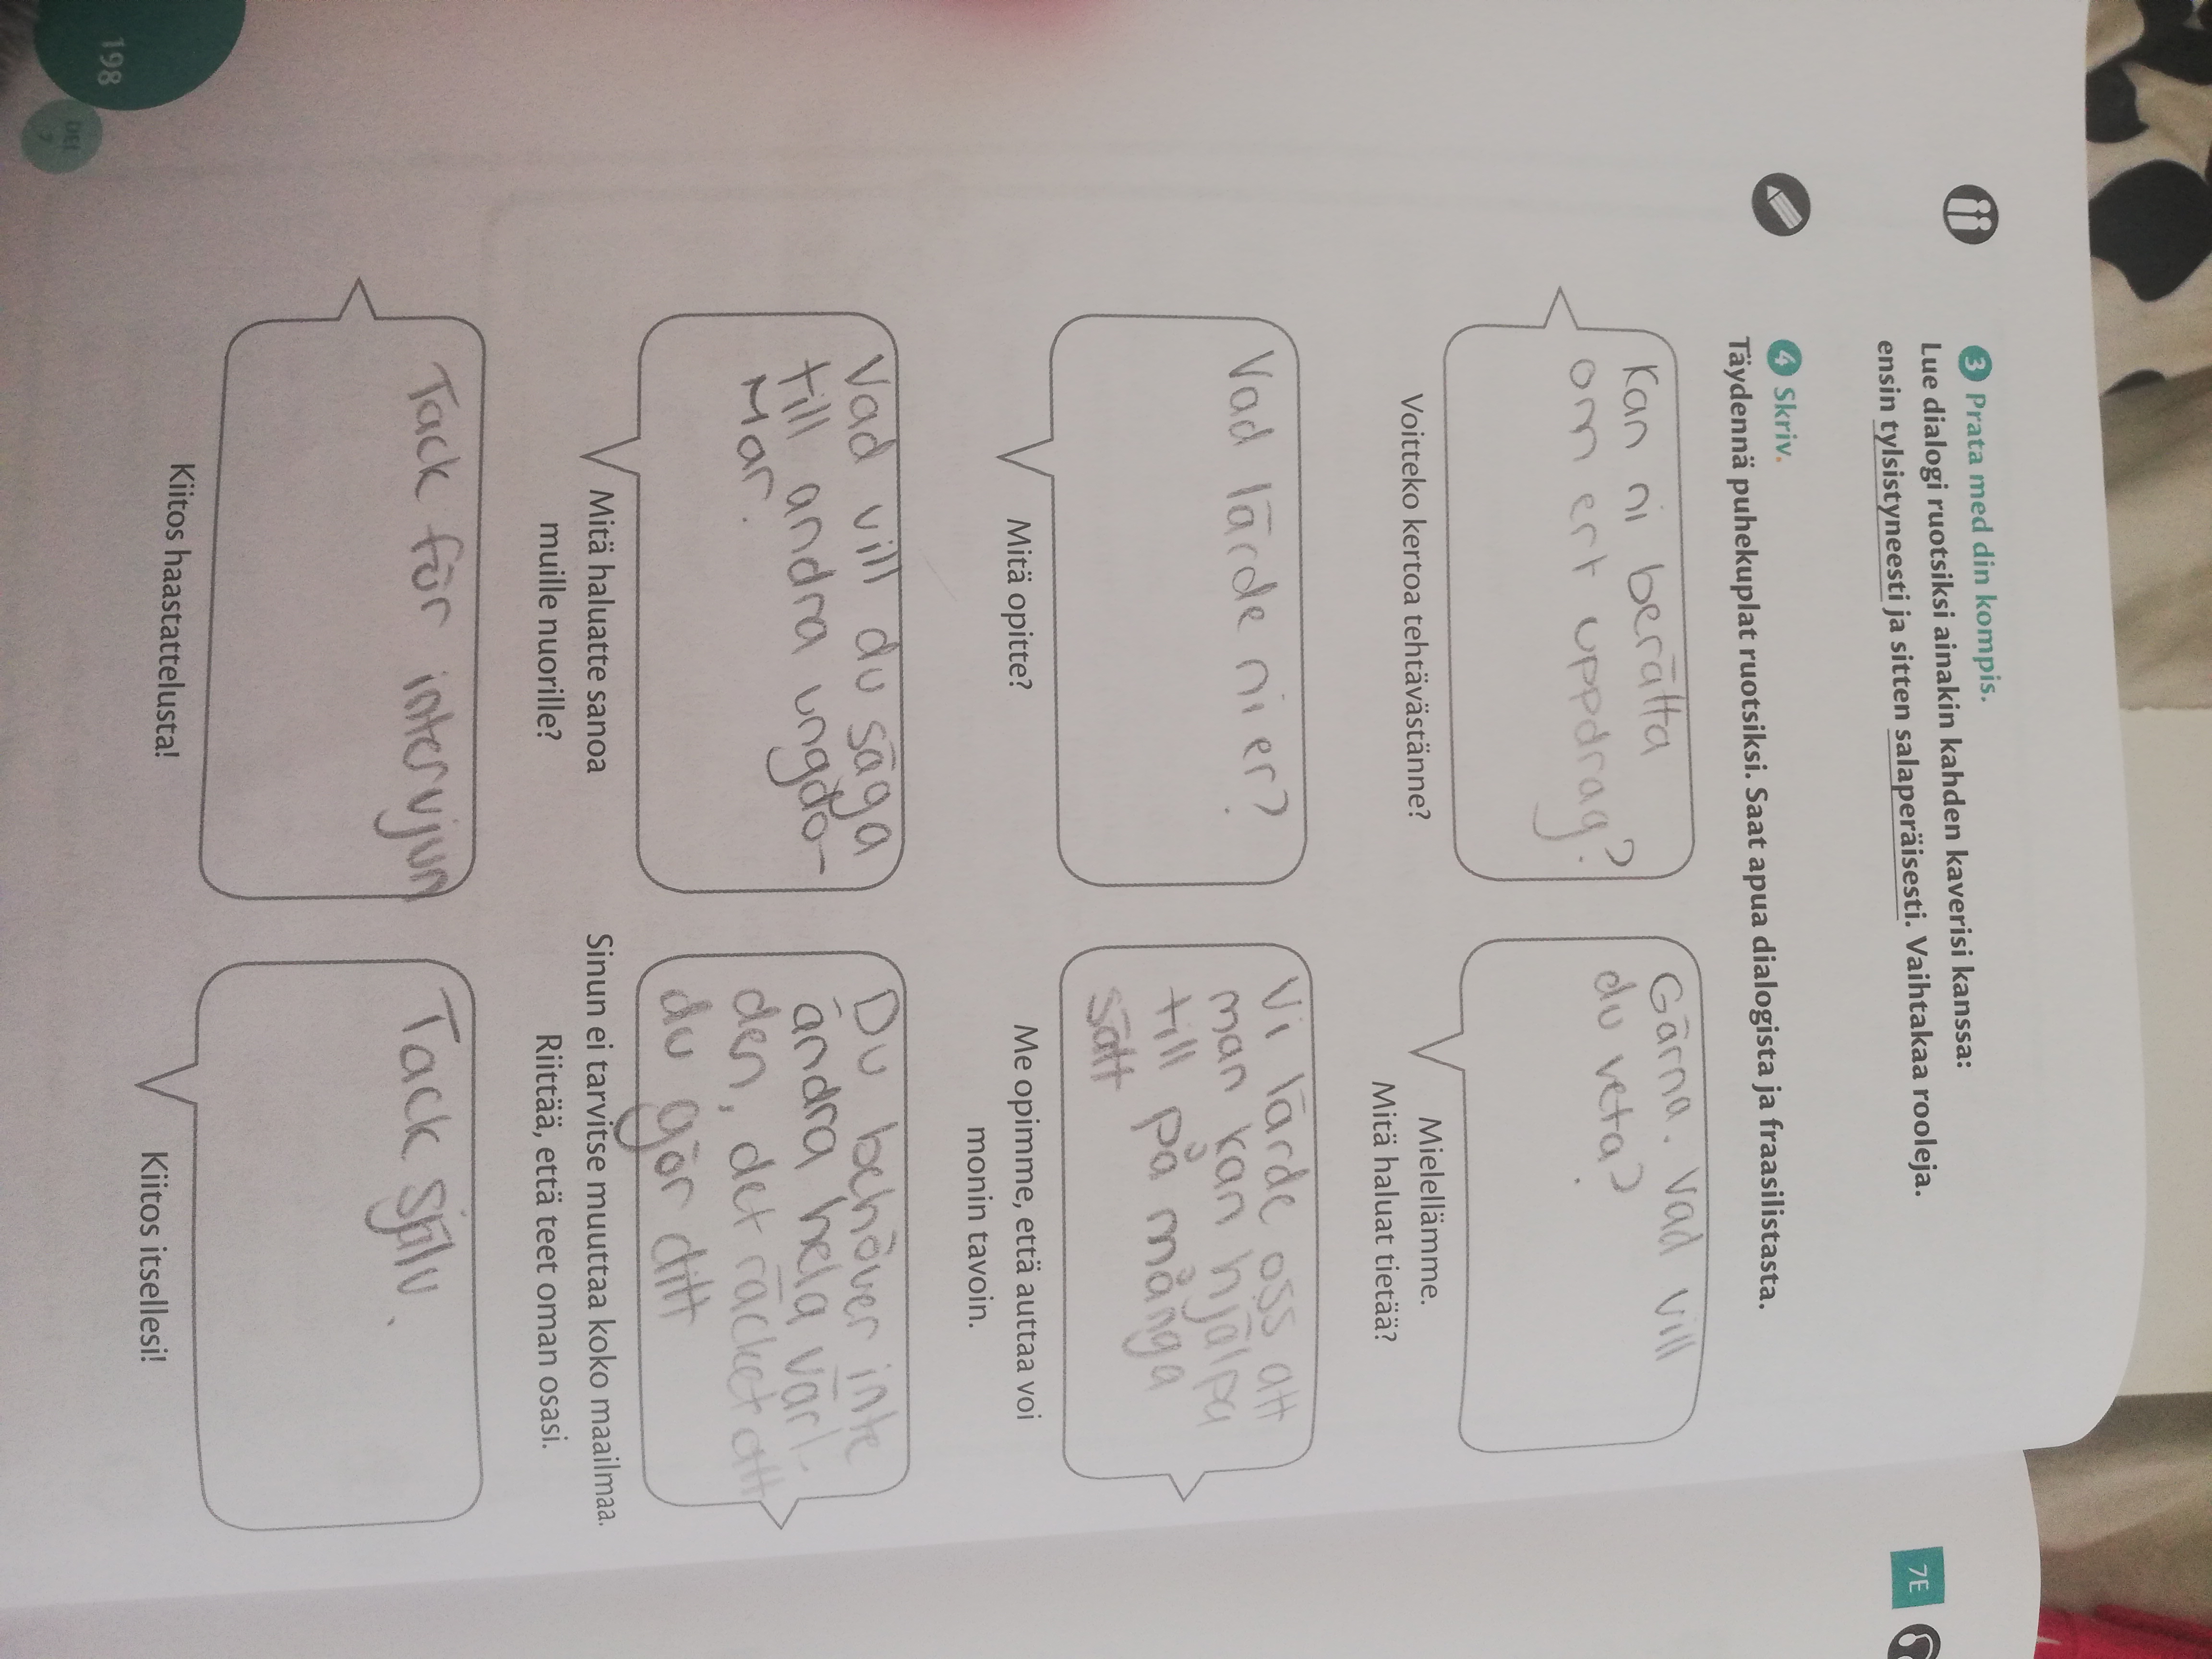 7E
3 Prata med din kompis.
Lue dialogi ruotsiksi ainakin kahden kaverisi kanssa:
ensin tylsistyneesti ja sitten salaperäisesti. Vaihtakaa rooleja.
4 Skriv.
Täydennä puhekuplat ruotsiksi. Saat apua dialogista ja fraasilistasta.
Kan ni berätta
om ert uppdrag?
Voitteko kertoa tehtävästänne?
Gärna. Vad vill
du veta?
Mielellämme.
Mitä haluat tietää?
Vad lärde ni er?
Mitä opitte?
Vi lärde oss att
man kan hjälpa
till på många
sätt
Me opimme, että auttaa voi
monin tavoin.
Vad vill du säga
till andra ungdo-
mar.
Mitä haluatte sanoa
muille nuorille?
Du behöver inte
ändra hela värl-
den, det räcket att
du gör ditt
Sinun ei tarvitse muuttaa koko maailmaa.
Riittää, että teet oman osasi.
Tack för intervjun
Kiitos haastattelusta!
Tack själv.
Kiitos itsellesi!
198
DEL
7